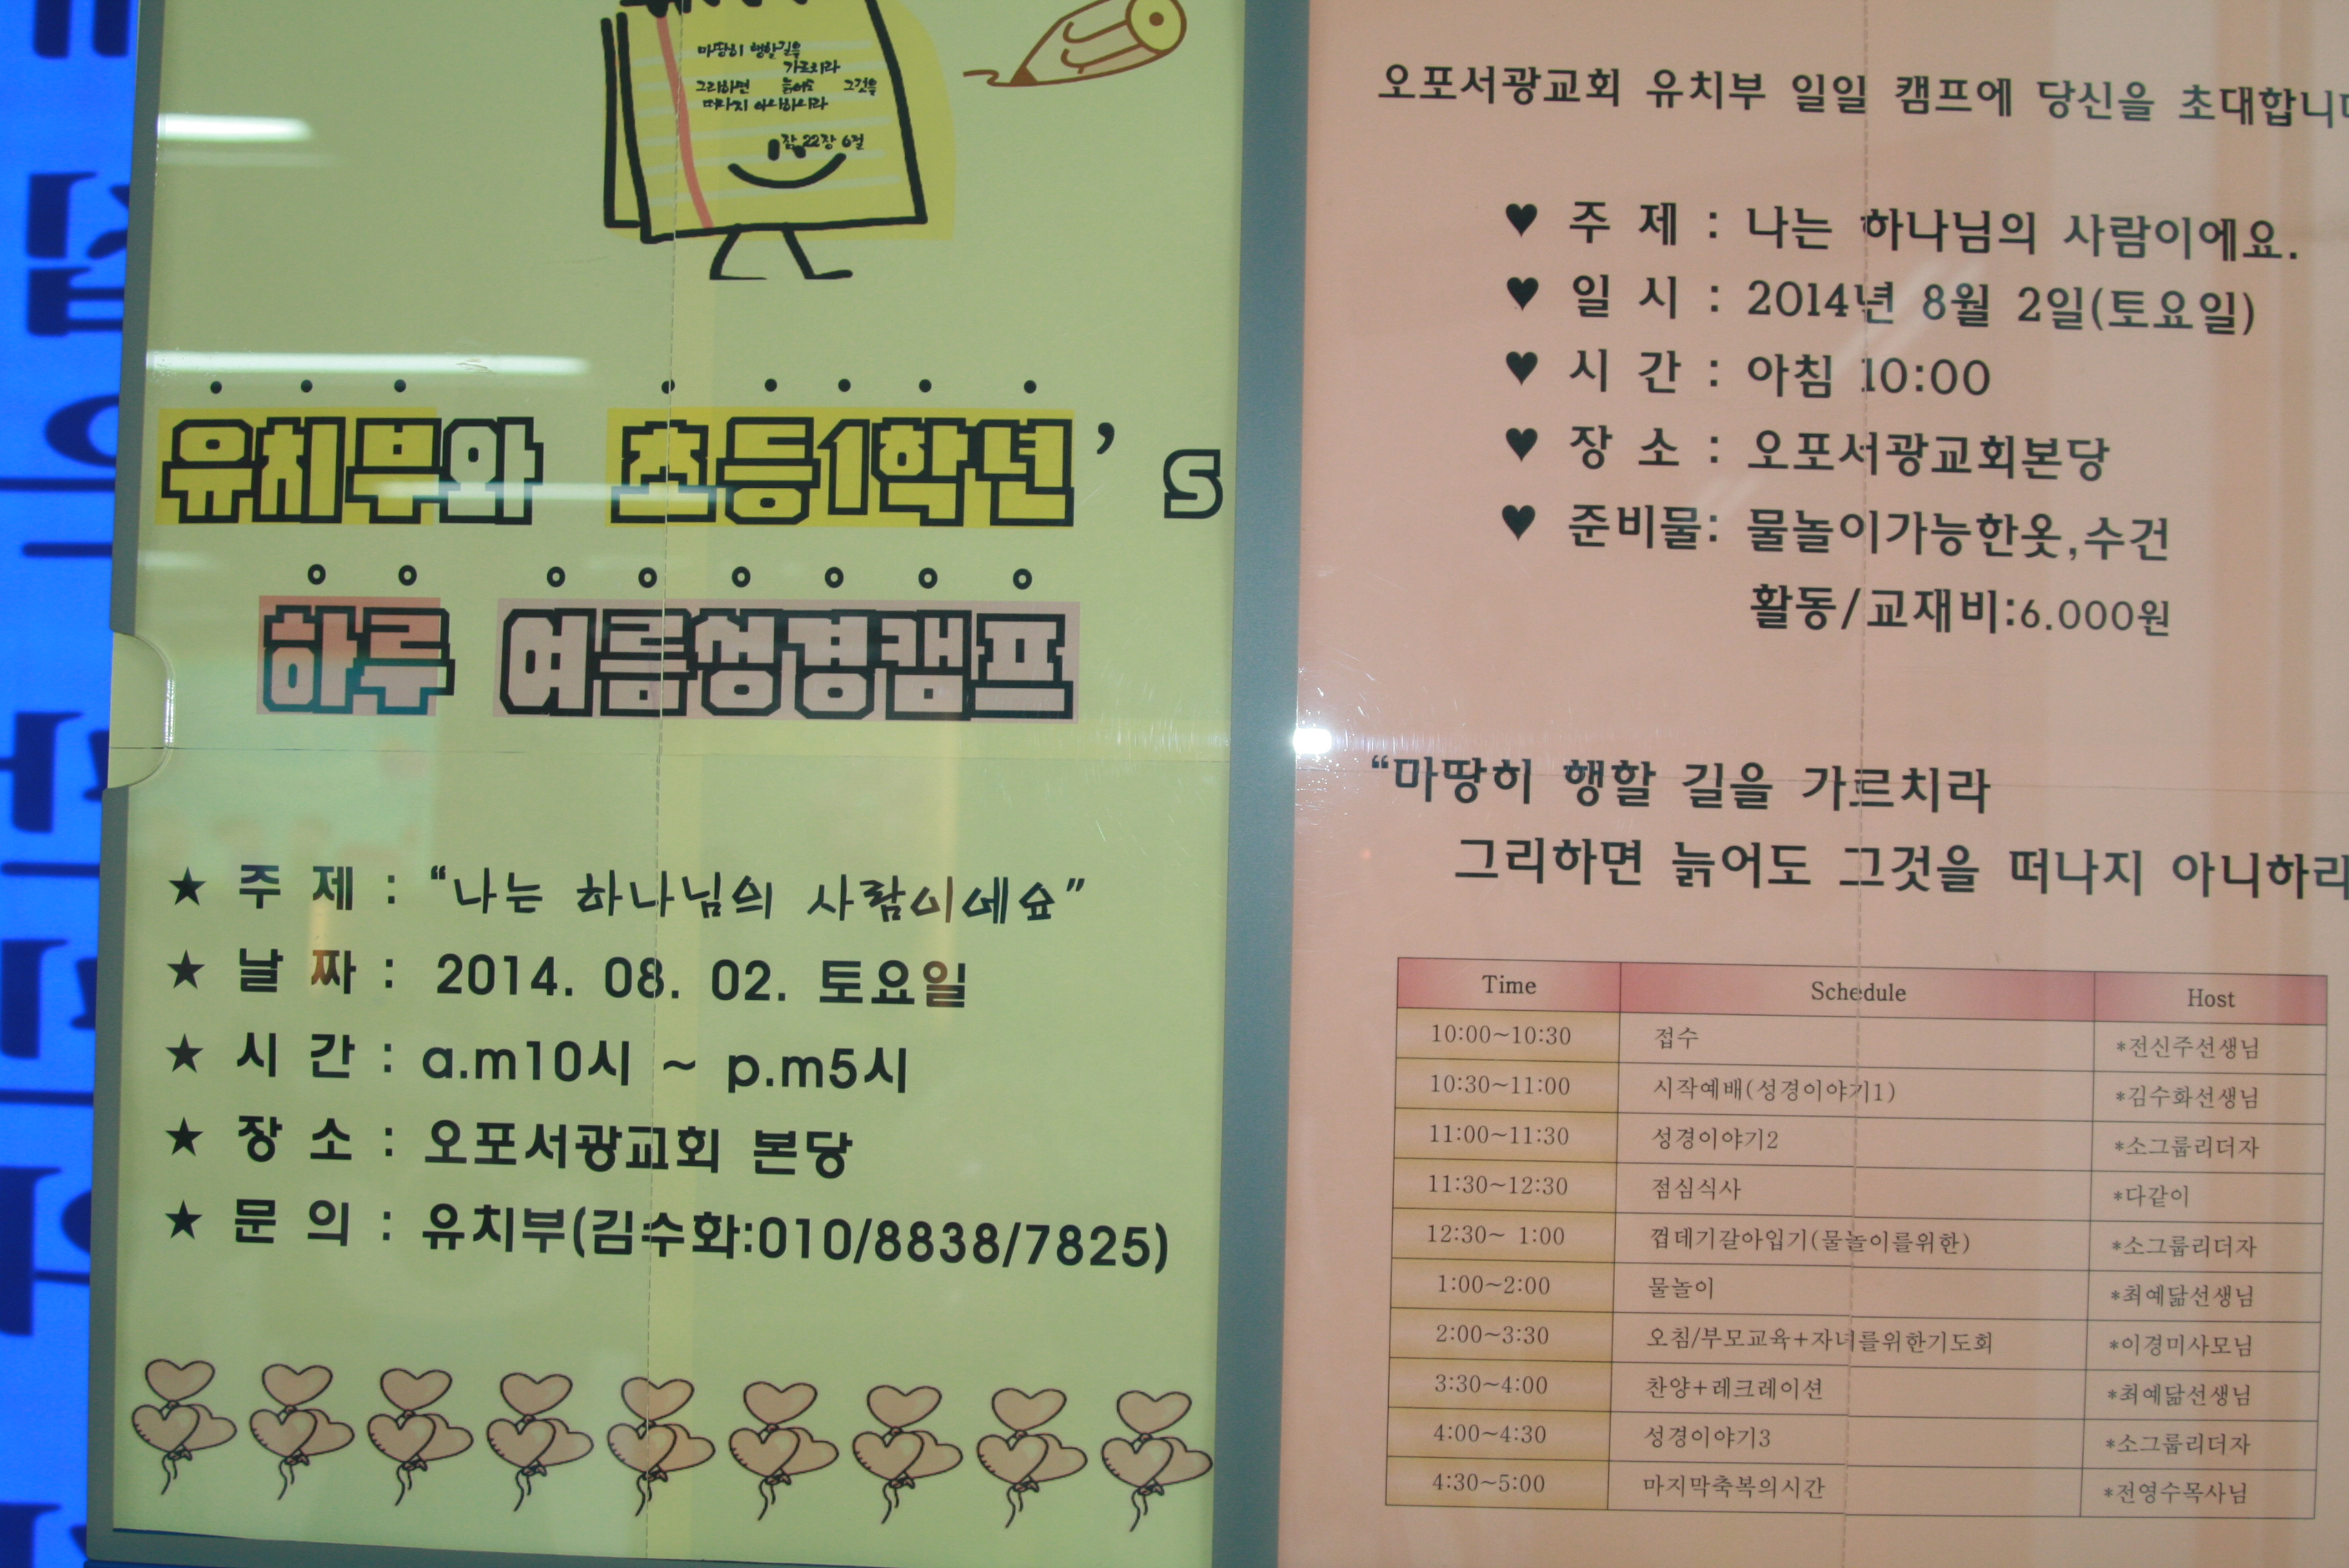 마땅히 행할길을
가르치라
그리하면 늙어도 그것을
떠나지 아니하리라
잠 22장 6절
유치부와 초등1학년's
하루 여름성경캠프
★ 주 제 : “나는 하나님의 사람이에요”
★ 날 짜 : 2014. 08. 02. 토요일
★ 시 간 : a.m10시 ~ p.m5시
★ 장 소 : 오포서광교회 본당
★ 문 의 : 유치부(김수화:010/8838/7825)
오포서광교회 유치부 일일 캠프에 당신을 초대합니
♥ 주 제 : 나는 하나님의 사람이에요.
♥ 일 시 : 2014년 8월 2일(토요일)
♥ 시 간 : 아침 10:00
♥ 장 소 : 오포서광교회본당
♥ 준비물: 물놀이가능한옷,수건
활동/교재비:6.000원
“마땅히 행할 길을 가르치라
그리하면 늙어도 그것을 떠나지 아니하리
Time Schedule Host
10:00~10:30 접수 *전신주선생님
10:30~11:00 시작예배(성경이야기1) *김수화선생님
11:00~11:30 성경이야기2 *소그룹리더자
11:30~12:30 점심식사 *다같이
12:30~ 1:00 껍데기갈아입기(물놀이를위한) *소그룹리더자
1:00~2:00 물놀이 *최예닮선생님
2:00~3:30 오침/부모교육+자녀를위한기도회 *이경미사모님
3:30~4:00 찬양+레크레이션 *최예닮선생님
4:00~4:30 성경이야기3 *소그룹리더자
4:30~5:00 마지막축복의시간 *전영수목사님